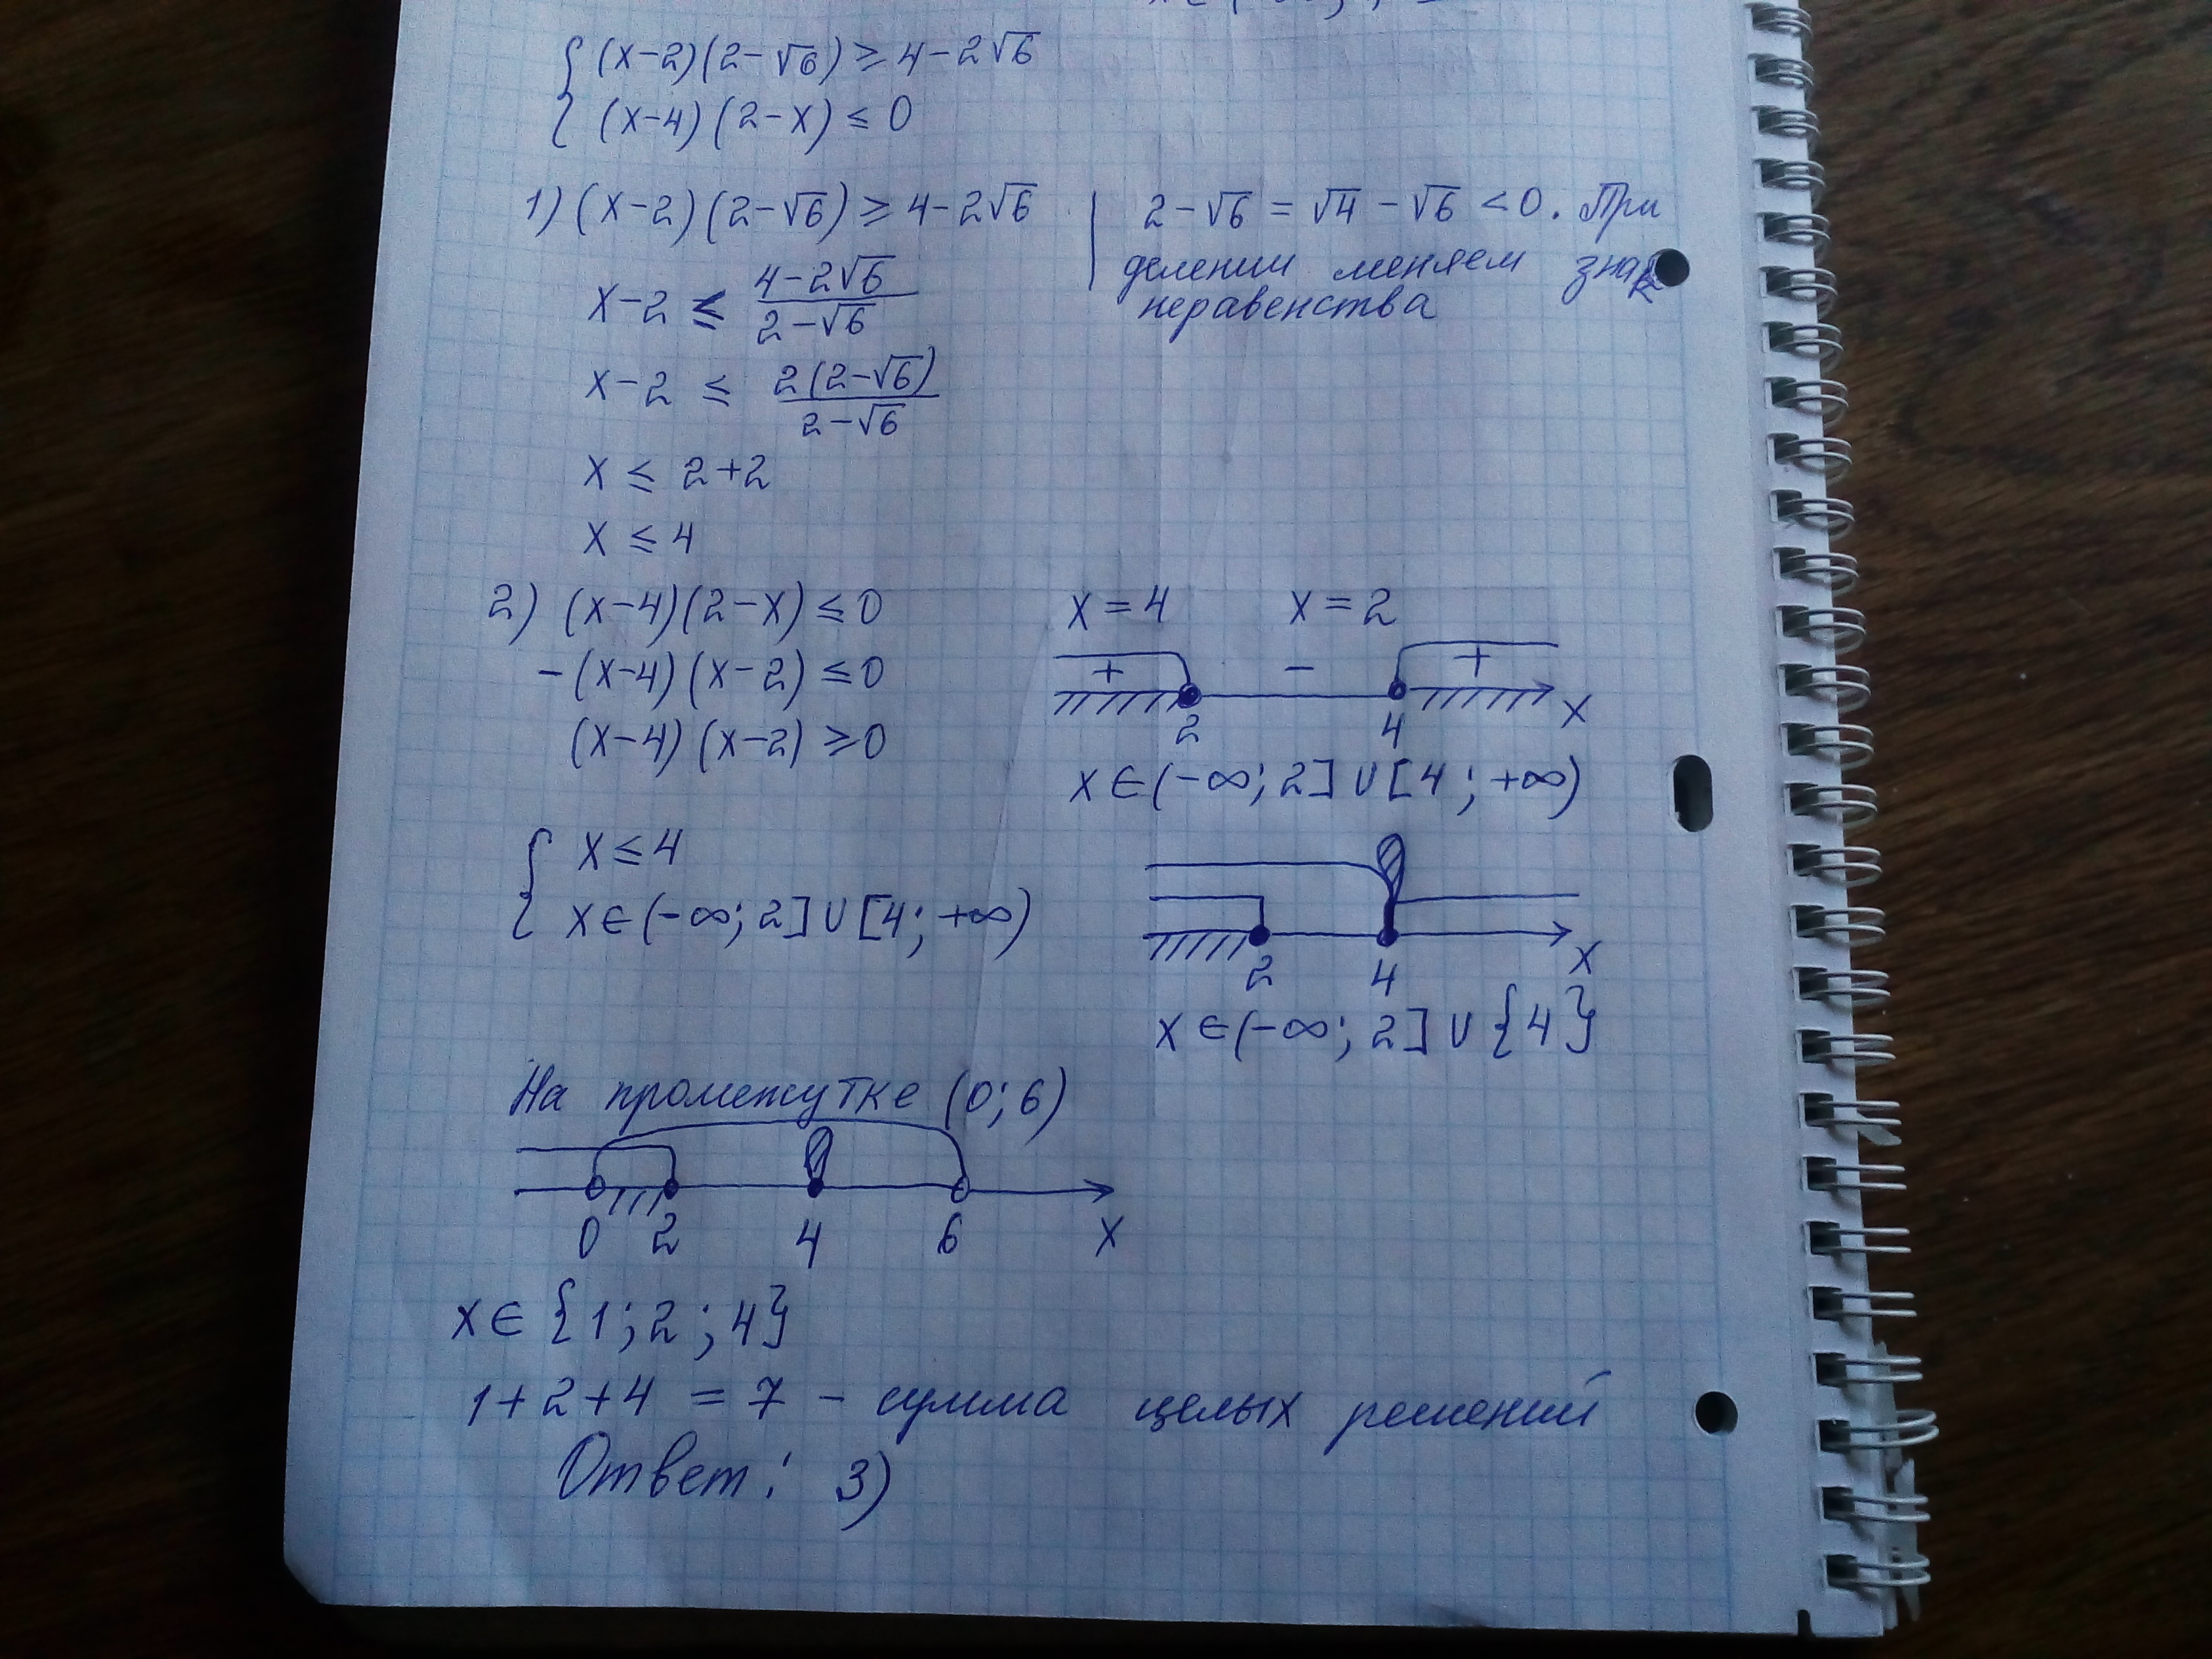 { (x-2)(2-√6) ≥ 4-2√6
(x-4)(2-x) ≤ 0
1) (x-2)(2-√6) ≥ 4-2√6 | 2-√6 = √4 - √6 < 0. При
делении меняем знак
неравенства
x-2 ≤ (4-2√6)/(2-√6)
x-2 ≤ 2(2-√6)/(2-√6)
x ≤ 2+2
x ≤ 4
2) (x-4)(2-x) ≤ 0
-(x-4)(x-2) ≤ 0
(x-4)(x-2) ≥ 0
x=4 x=2
+ - +
2 4 x
x∈(-∞; 2]∪[4; +∞)
{ x ≤ 4
x∈(-∞; 2]∪[4; +∞)
2 4 x
x∈(-∞; 2]∪{4}
На промежутке (0; 6)
0 2 4 6 x
x∈{1; 2; 4}
1+2+4 = 7 - сумма целых решений
Ответ: 3)